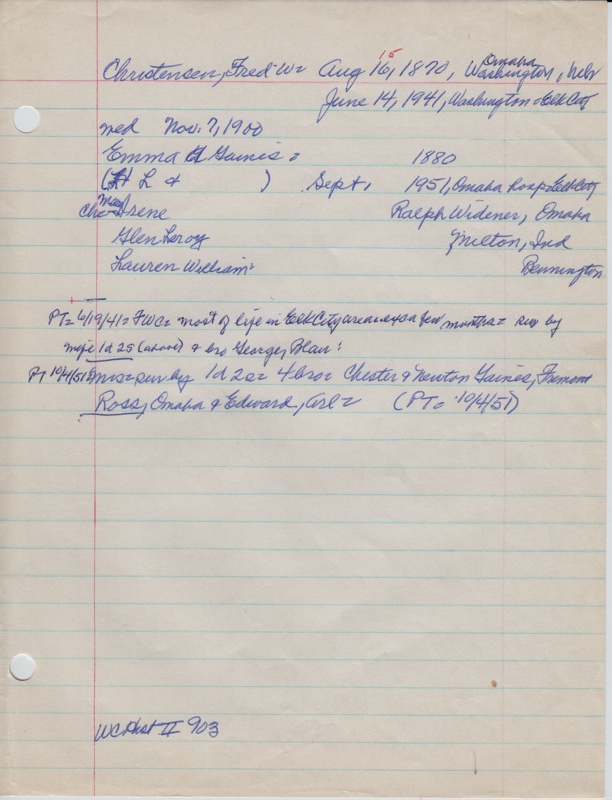 15
Omaha
Christensen, Fred W= Aug 16, 1870, Washington, Nebr
June 14, 1941, Washington - Elk City
med Nov. 7, 1900
Emma Gaines = 1880
( L & ) Sept, 1951, Omaha hosp Elk City
Mae
Ch= Irene Ralph Widener, Omaha
Glen Leroy Milton, Ind
Lauren William= Bennington
PT= 6/19/41= FWC= most of life in Elk City area exc a few months= sur by
wife 1d 2s (above) & bro George, Blair=
PT 10/4/51= mrs= sur by 1d 2s= 4 bro= Chester & Newton Gaines, Fremont
Ross, Omaha & Edward, Arl= (PT= 10/4/51)
WC Hist II 903